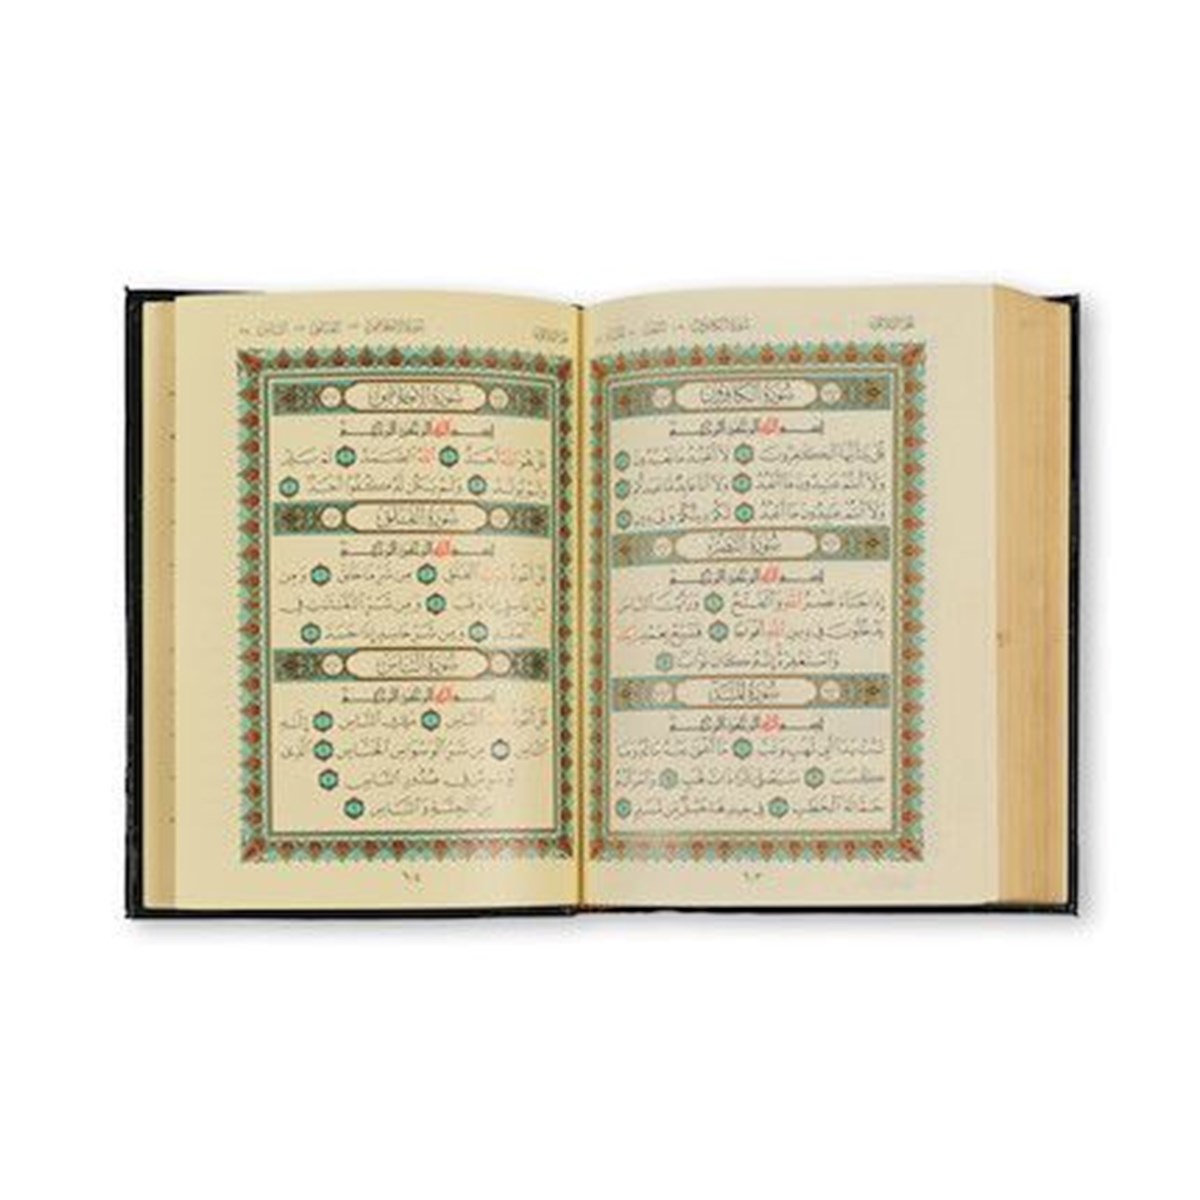 سورة الكافرون
بسم الله الرحمن الرحيم
قل يا أيها الكافرون لا أعبد ما تعبدون
ولا أنتم عابدون ما أعبد ولا أنا عابد ما عبدتم
ولا أنتم عابدون ما أعبد لكم دينكم ولي دين
سورة النصر
بسم الله الرحمن الرحيم
إذا جاء نصر الله والفتح ورأيت الناس
يدخلون في دين الله أفواجا فسبح بحمد ربك
واستغفره إنه كان توابا
سورة المسد
بسم الله الرحمن الرحيم
تبت يدا أبي لهب وتب ما أغنى عنه ماله وما
كسب سيصلى نارا ذات لهب وامرأته
حمالة الحطب في جيدها حبل من مسد
٦٠٣
سورة الإخلاص
بسم الله الرحمن الرحيم
قل هو الله أحد الله الصمد لم يلد
ولم يولد ولم يكن له كفوا أحد
سورة الفلق
بسم الله الرحمن الرحيم
قل أعوذ برب الفلق من شر ما خلق ومن
شر غاسق إذا وقب ومن شر النفاثات في
العقد ومن شر حاسد إذا حسد
سورة الناس
بسم الله الرحمن الرحيم
قل أعوذ برب الناس ملك الناس إله
الناس من شر الوسواس الخناس الذي
يوسوس في صدور الناس
من الجنة والناس
٦٠٤